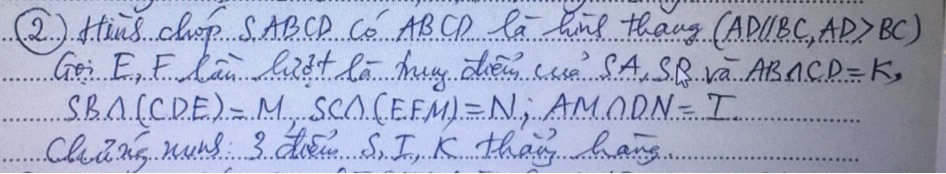 ② Hình chóp S.ABCD có ABCD là hình thang (AD//BC, AD>BC)
Gọi E, F lần lượt là trung điểm của SA, SB và AB∩CD=K,
SB∩(CDE)=M, SC∩(EFM)=N; AM∩DN=I.
Chứng minh: 3 điểm S, I, K thẳng hàng.